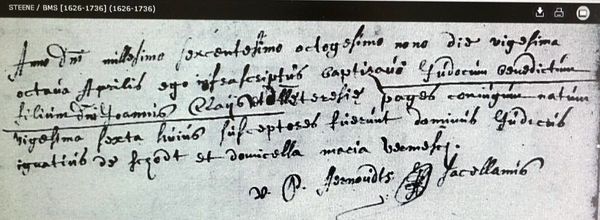 STEENE / BMS [1626-1736] (1626-1736)
Anno dni millesimo sexcentesimo octogesimo nono die vigesima
octava Aprilis ego infrascriptus baptizavi Judocum benedictum
filium dni Joannis et teresiæ pages coniugum natum
vigesima sexta huius susceptores fuerunt dominus Judocus
ignatius de et domicella maria
J. sacellanus